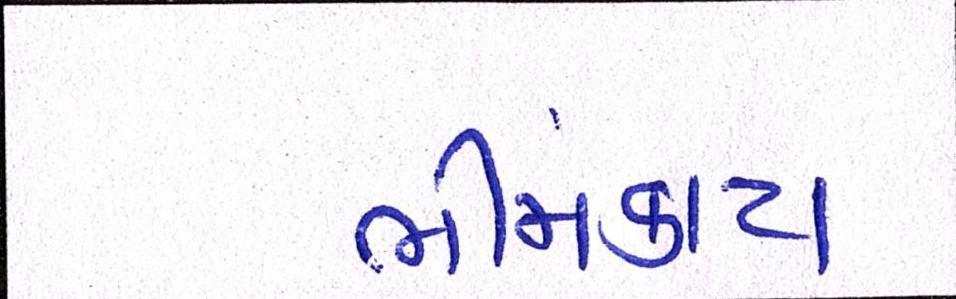 ભીમંકાટા